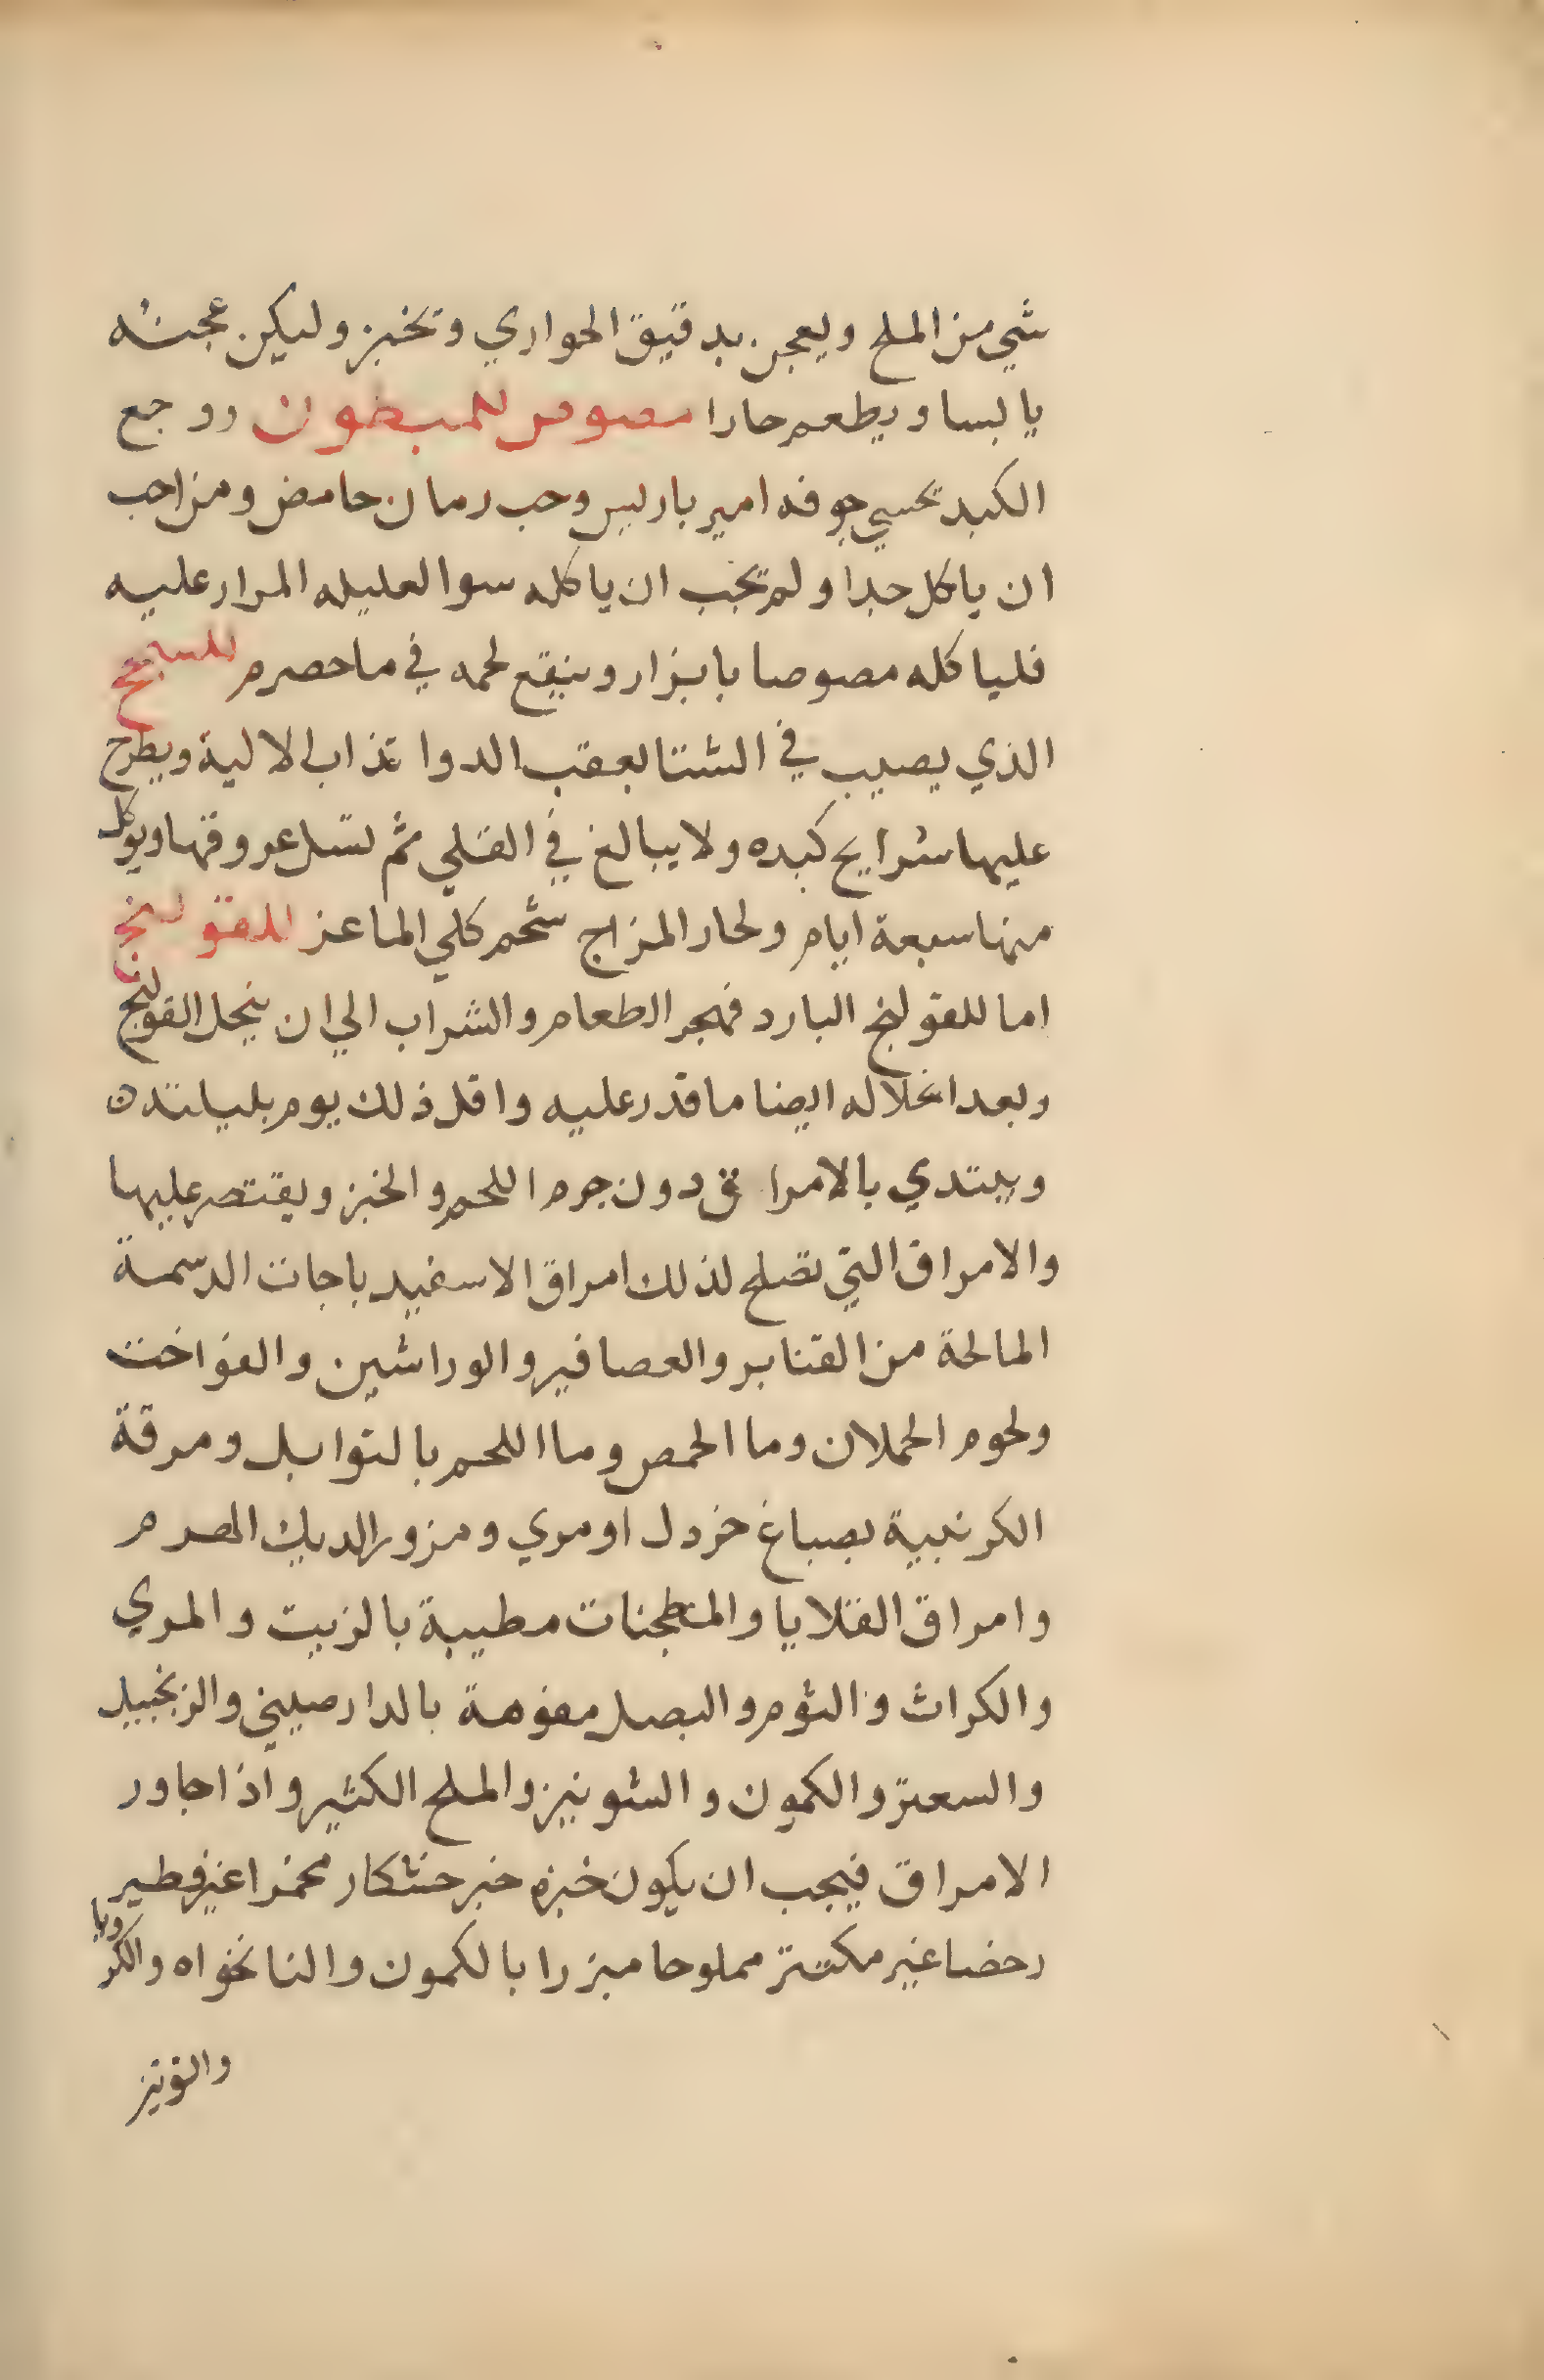 شي من الملح ويعجن بدقيق الحواري وتخبز وليكن عجنه
يابسا ويطعم حارا مصوص للمبطون ووجع
الكبد تحسي جوفه امير باريس وحب رمان حامض ومن احب
ان ياكل جدا ولم تحب ان ياكله سوا لعليله المرار عليه
فلياكله مصوصا بابزار وينقع لحمه في ما حصرم للسحج
الذي يصيب في الشتا بعقب الدوا تذاب الالية ويطرح
عليها شرايح كبده ولا يبالغ في القلي ثم تسل عروقها ويوكل
منها سبعة ايام ولحار المزاج شحم كلي الماعز للقولنج
اما للقولنج البارد فهجر الطعام والشراب الي ان ينحل القولنج
وبعد انحلاله ايضا ما قدر عليه واقل ذلك يوم بليلته
ويبتدي بالامراق دون جرم اللحم والخبز ويقتصر عليها
والامراق التي تصلح لذلك امراق الاسفيد باجات الدسمة
المالحة من القنابر والعصافير والوراشين والفواخت
ولحوم الحملان وما الحمص وما اللحم بالتوابل ومرقة
الكرنبية بصباغ خردل او مري ومزور الديك الهرم
وامراق القلايا والمطجنات مطيبة بالزيت والمري
والكراث والثوم والبصل مفوهة بالدارصيني والزنجبيل
والسعتر والكمون والشونيز والملح الكثير واذا جاور
الامراق فيجب ان يكون خبزه خبز خشكار مخمرا غير فطير
رخصا غير مكتنز مملوحا مبزرا بالكمون والنانخواه والكرويا